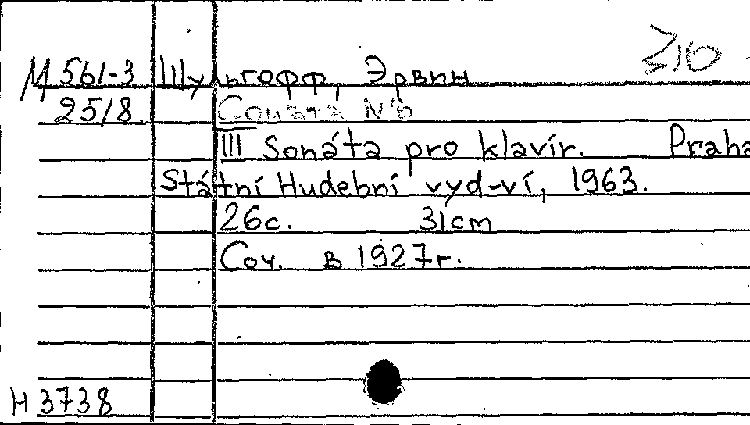 310
М 561-3 Шульгофф, Эрвин
25/8 Соната №
III Sonáta pro klavír. Praha
Státní Hudební vyd-ví, 1963.
26с. 31cm
Соч. в 1927г.
Н 3738